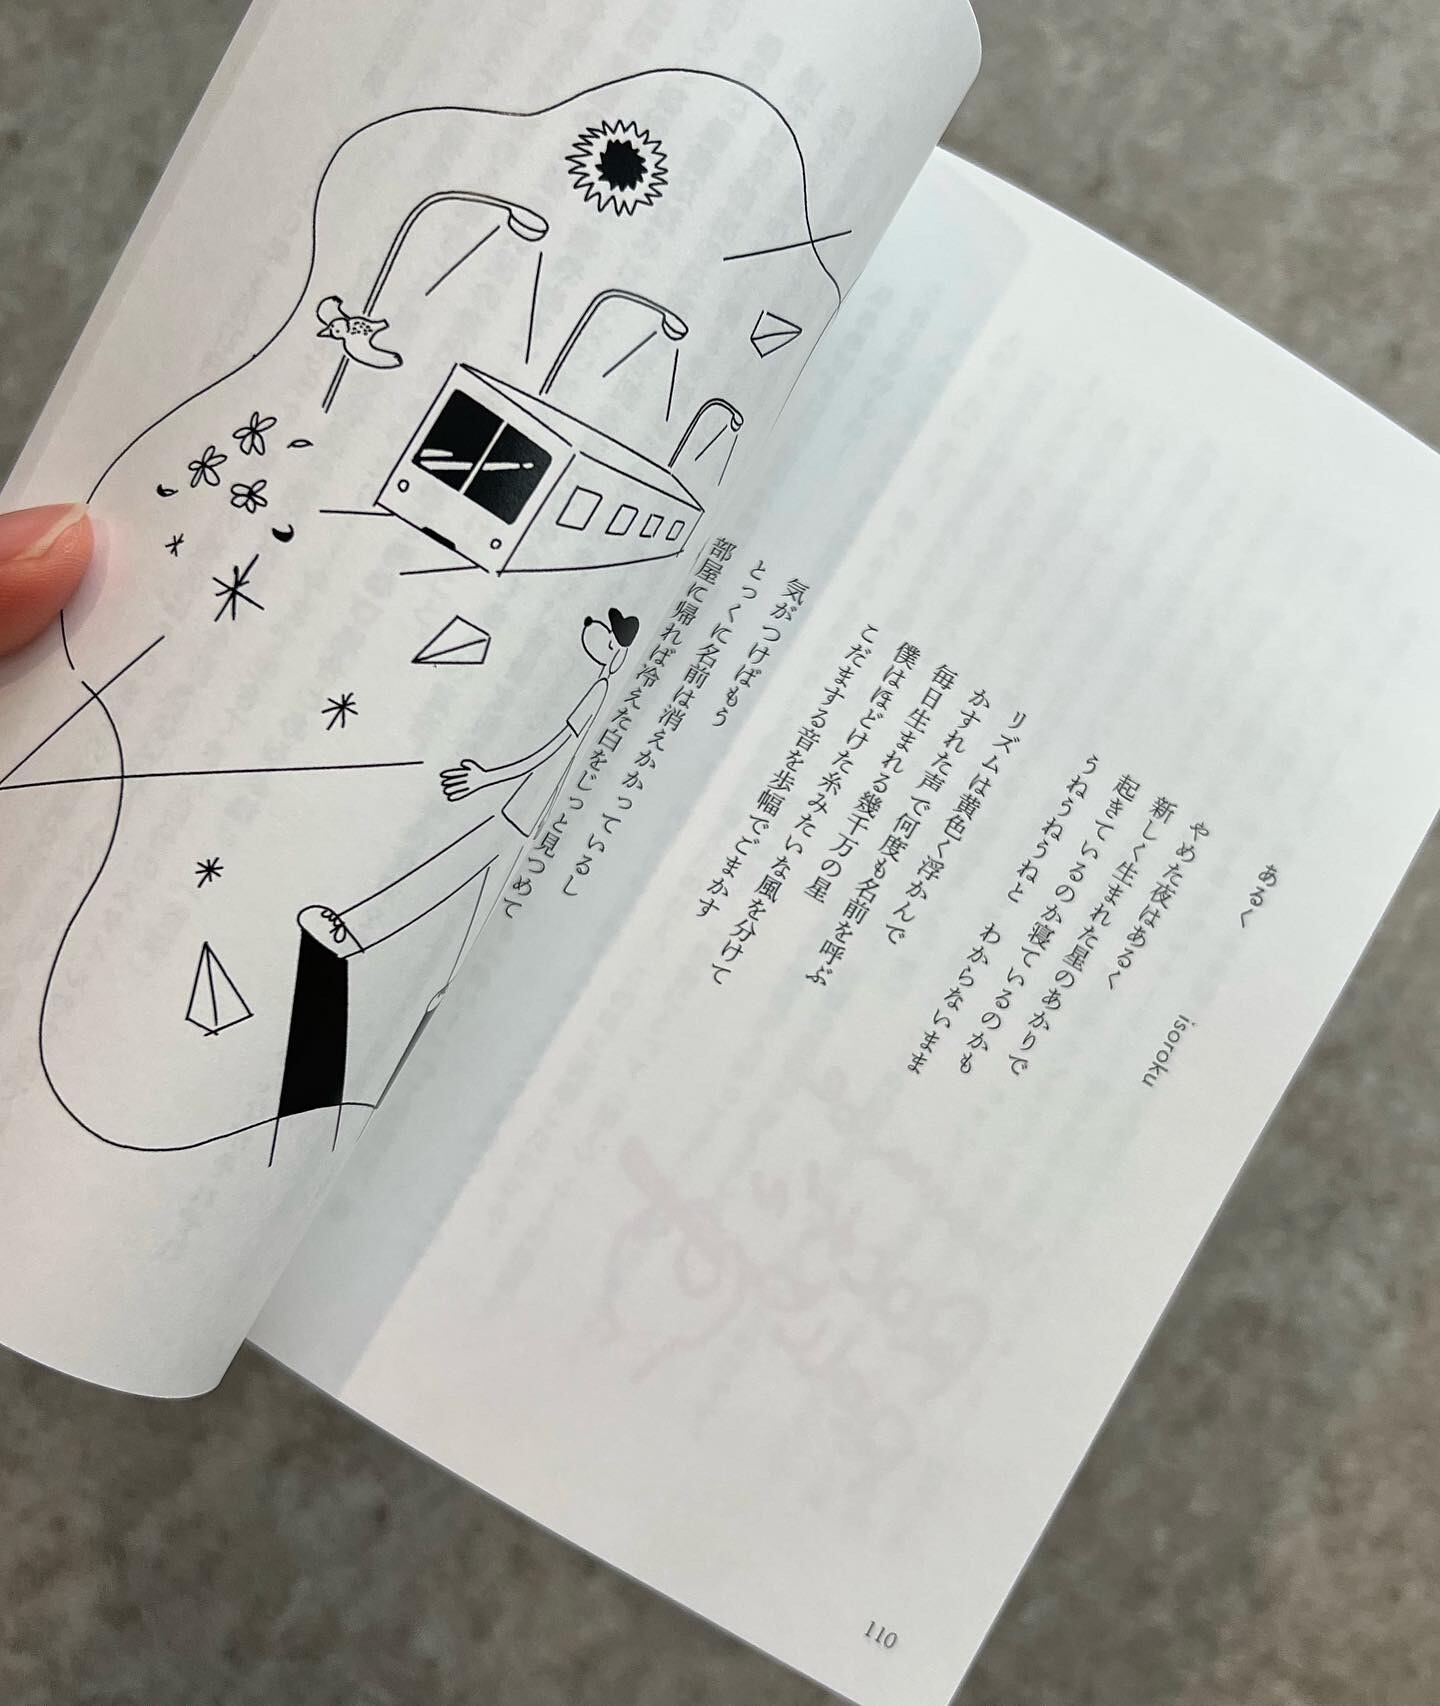 あるく
isoroku
やめた夜はあるく
新しく生まれた星のあかりで
起きているのか寝ているのかも
うねうねうねと　わからないまま
リズムは黄色く浮かんで
かすれた声で何度も名前を呼ぶ
毎日生まれる幾千万の星
僕はほどけた糸みたいな風を分けて
こだまする音を歩幅でごまかす
気がつけばもう
とっくに名前は消えかかっているし
部屋に帰れば冷えた白をじっと見つめて
110